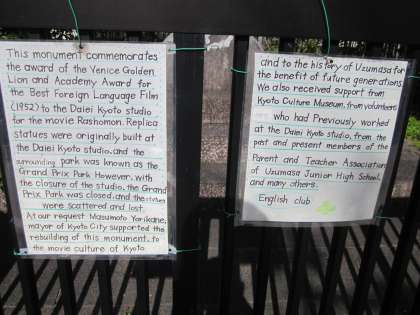 This monument commemorates
the award of the Venice Golden
Lion and Academy Award for
the Best Foreign Language Film
(1952) to the Daiei Kyoto studio
for the movie Rashomon. Replica
statues were originally built at
the Daiei Kyoto studio, and the
surrounding park was known as the
Grand Prix Park. However, with
the closure of the studio, the Grand
Prix Park was closed, and the statues
were scattered and lost.
At our request Masumoto Yorikane,
mayor of Kyoto City supported the
rebuilding of this monument, to
the movie culture of Kyoto
and to the history of Uzumasa for
the benefit of future generations.
We also received support from
Kyoto Culture Museum, from volunteers
who had Previously worked
at the Daiei Kyoto studio, from the
past and present members of the
Parent and Teacher Association
of Uzumasa Junior High School,
and many others.
English club